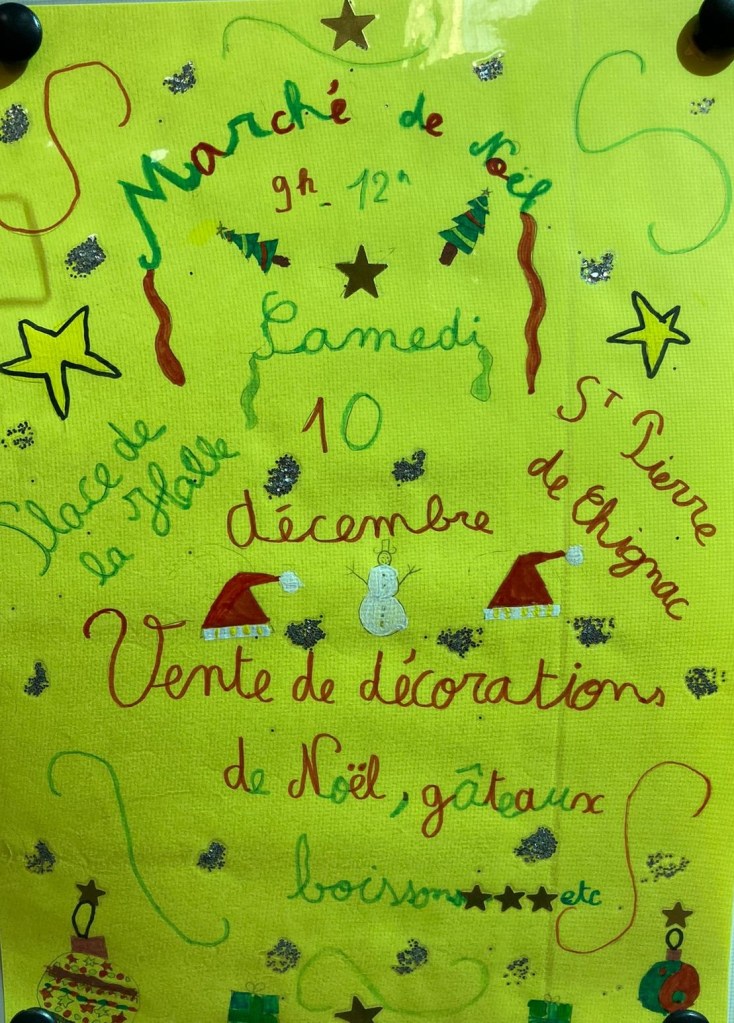 Marché de Noël
9h - 12h
Samedi
10
Place de
la Halle
St Pierre
de Chignac
décembre
Vente de décorations
de Noël, gâteaux
boissons etc